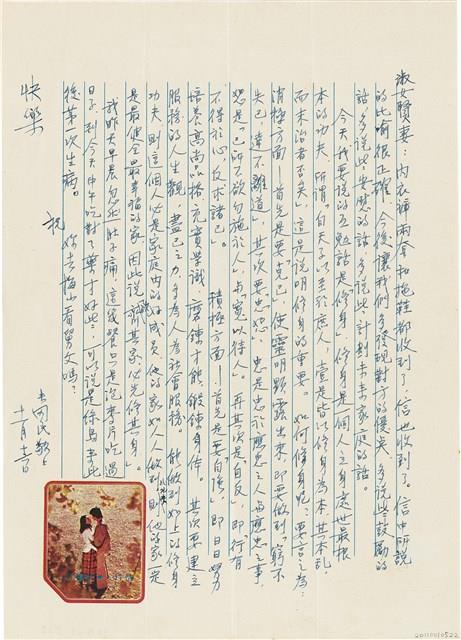 淑女賢妻：內衣褲兩套和拖鞋都收到了，信也收到了。信中所說
的比喻很正確，今後讓我們多發現對方的優點，多說些鼓勵的
話，多說些安慰的話，多說些計劃未來家庭的話。
今天我要說的互勉話是「修身」，修身是一個人立身處世最根
本的功夫，所謂「自天子以至於庶人，壹是皆以修身為本，其本亂，
而末治者否矣」，這是說明修身的重要。如何修身呢？要言之為：
消極方面——首先是要「克己」，使靈明顯露出來，即要做到「窮不
失己，達不離道」，其次要「忠恕」，忠是忠於應忠之人與應忠之事，
恕是「己所不欲勿施於人」，與「寬以待人」。再其次是自反，即「行有
不得於心，反求諸己。」積極方面——首先是要「自強」，即日日努力
培養高尚品格，充實學識，磨鍊才能，鍛鍊身體。其次要建立
服務的人生觀，盡己之力，多為人為社會服務。能做到如上的修身
功夫，則這個人必是家庭內的好成員，他的家如人人做到，則他的家一定
是最健全最幸福的家，因此說齊其家必先修其身。
我昨天早晨忽然肚子痛，這幾餐只是泡麥片吃，過
日子，到今天中午吃對了藥才好些，可以說是綠島來此
後第一次生病。
妳去梅山看舅父嗎？
祝
快樂
十一月十二日
20110010522